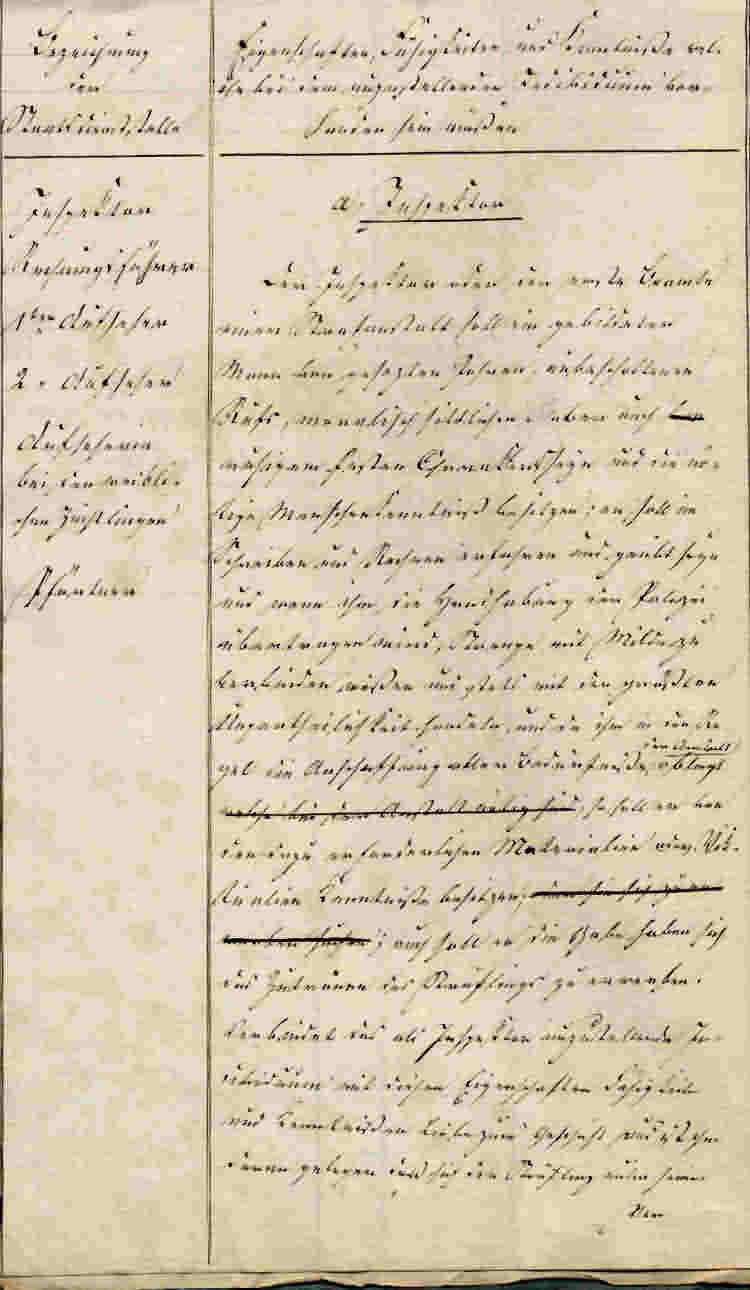 Bezeichnung
der
Staatsdienststelle
Eigenschaften, Fähigkeiten und Kenntniße wel-
che bei dem anzustellenden Individuum vor-
handen sein müßen
Inspektor
Rechnungsführer
1ter Aufseher
2. Aufseher
Aufseherin
bei den weibli-
chen Züchtlingen
Pförtner
a, Inspektor
Der Inspektor oder der erste Beamte
einer Strafanstalt soll ein gebildeter
Mann von gesezten Jahren, unbescholtenen
Rufs, moralisch sittlichen aber auch
ruhigem festen Charakters seyn und die nö-
thige Menschenkenntniß besitzen; er soll im
Schreiben und Rechnen erfahren und geübt seyn
und wenn ihm die Handhabung der Polizei
übertragen wird, Strenge mit Milde zu
verbinden wißen und stets mit der größten
Unpartheilichkeit handeln, und da ihm in der Re-
gel die Anschaffung aller Bedürfniße der Anstalt obliegt
welche bei der Anstalt nötig sind, so soll er von
den dazu erforderlichen Materialien oder Vik-
tualien Kenntniße besitzen,
; auch soll er die Gabe haben sich
das Zutrauen des Sträflings zu erwerben.
Verbindet das als Inspektor anzustellende In-
dividuum mit diesen Eigenschaften Fähigkeiten
und Kenntnissen Liebe zum Geschäft und ist ihm
daran gelegen daß sich der Sträfling unter seiner